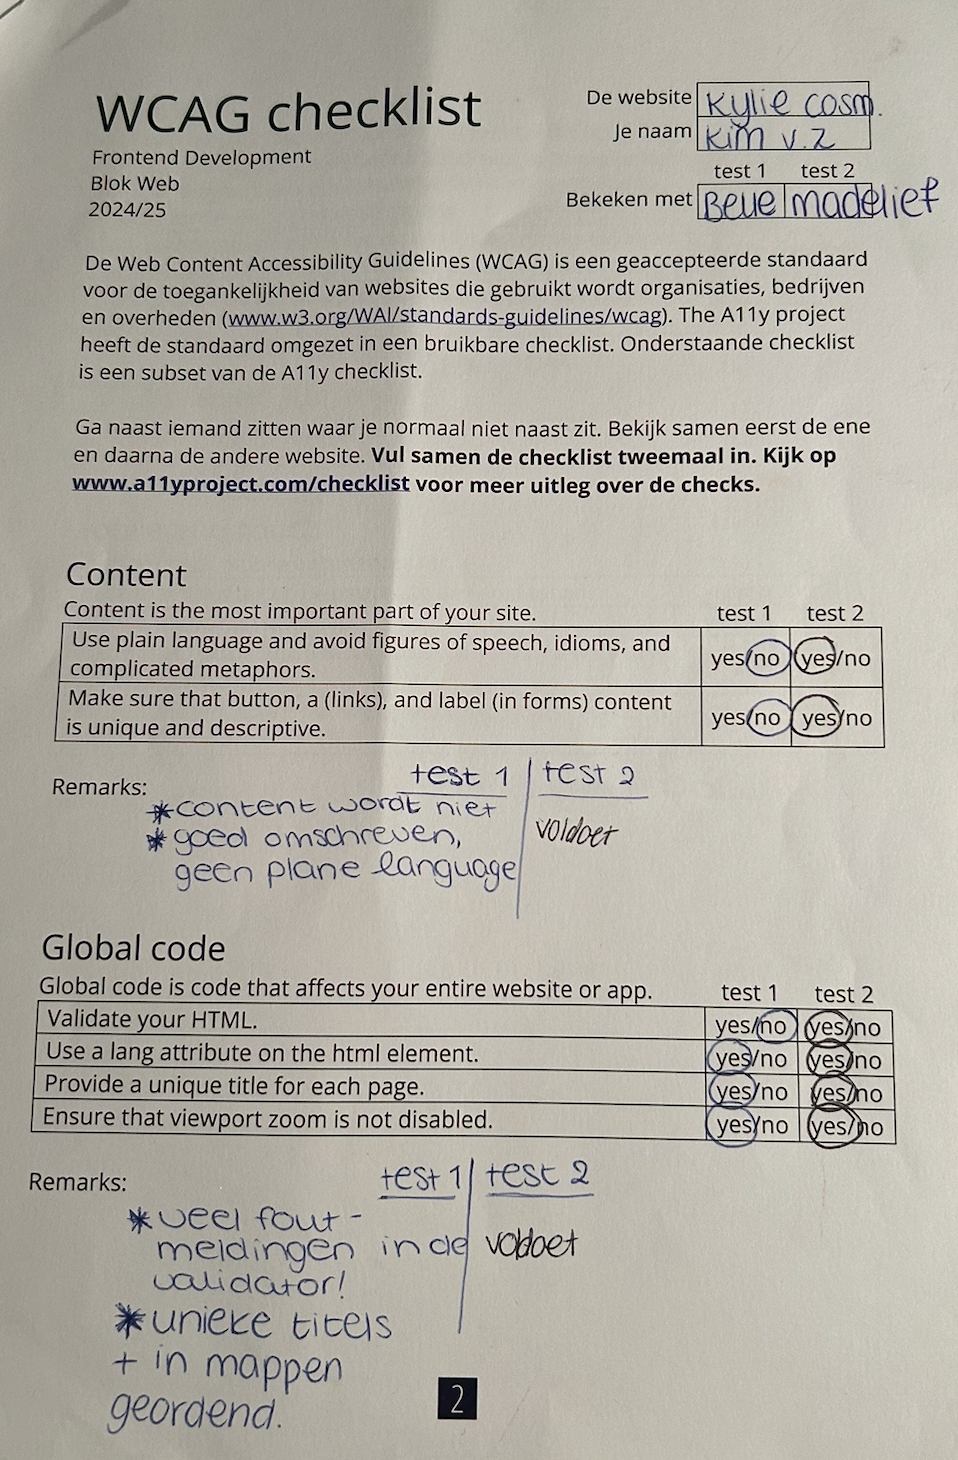 WCAG checklist
Frontend Development
Blok Web
2024/25
De website Kylie cosm.
Je naam Kim v. Z
test 1 test 2
Bekeken met Beue madelief
De Web Content Accessibility Guidelines (WCAG) is een geaccepteerde standaard
voor de toegankelijkheid van websites die gebruikt wordt organisaties, bedrijven
en overheden (www.w3.org/WAI/standards-guidelines/wcag). The A11y project
heeft de standaard omgezet in een bruikbare checklist. Onderstaande checklist
is een subset van de A11y checklist.
Ga naast iemand zitten waar je normaal niet naast zit. Bekijk samen eerst de ene
en daarna de andere website. Vul samen de checklist tweemaal in. Kijk op
www.a11yproject.com/checklist voor meer uitleg over de checks.
Content
Content is the most important part of your site. test 1 test 2
Use plain language and avoid figures of speech, idioms, and
complicated metaphors. yes/no yes/no
Make sure that button, a (links), and label (in forms) content
is unique and descriptive. yes/no yes/no
Remarks: test 1 test 2
* content wordt niet
* goed omschreven, voldoet
geen plane language
Global code
Global code is code that affects your entire website or app. test 1 test 2
Validate your HTML. yes/no yes/no
Use a lang attribute on the html element. yes/no yes/no
Provide a unique title for each page. yes/no yes/no
Ensure that viewport zoom is not disabled. yes/no yes/no
Remarks: test 1 test 2
* veel fout-
meldingen in de voldoet
validator!
* unieke titels
+ in mappen
geordend.
2